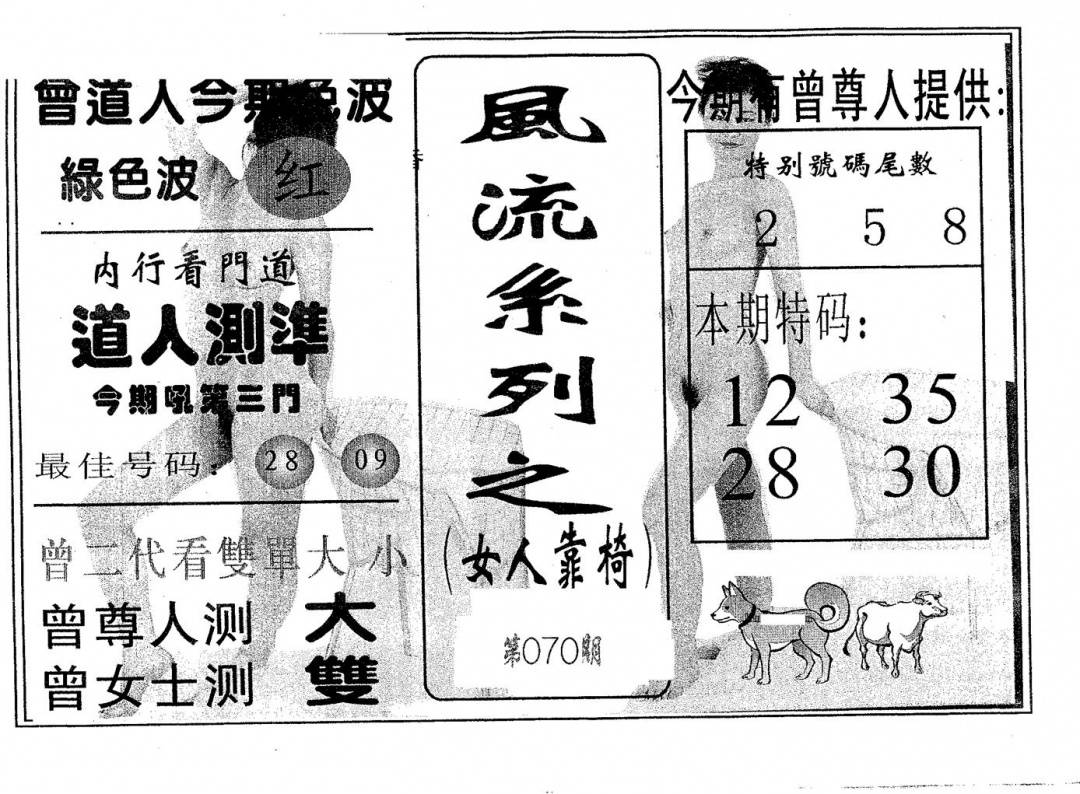 曾道人今期色波
綠色波 红
内行看門道
道人測準
今期吼第三門
最佳号码： 28 09
曾二代看雙單大小
曾尊人测 大
曾女士测 雙
風流系列之
（女人靠椅）
第070期
今期有曾尊人提供：
特别號碼尾數
2 5 8
本期特码：
12 35
28 30